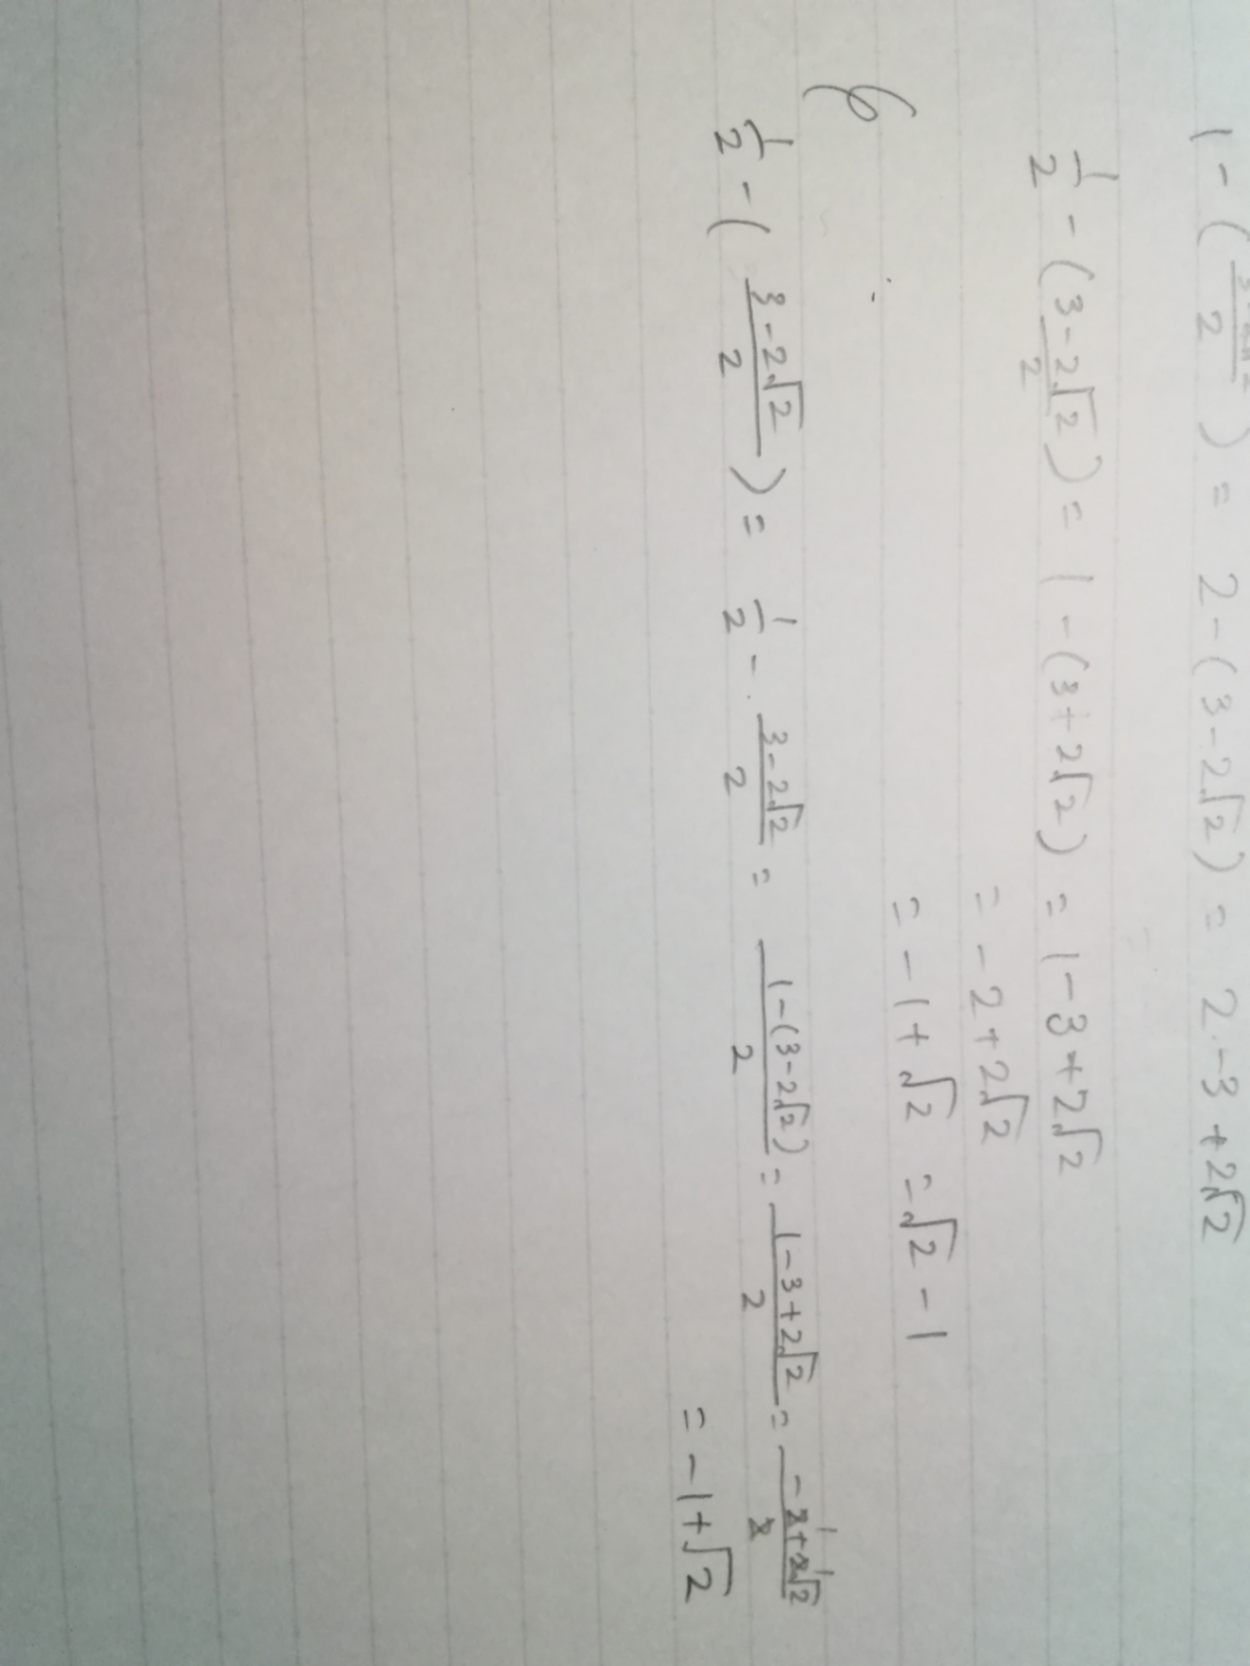 1 - ( 3-2√2 / 2 ) = 2 - (3 - 2√2) = 2 - 3 + 2√2
1/2 - ( 3-2√2 / 2 ) = 1 - (3 + 2√2) = 1 - 3 + 2√2
= -2 + 2√2
= -1 + √2 = √2 - 1
6
1/2 - ( 3-2√2 / 2 ) = 1/2 - 3-2√2 / 2 = 1-(3-2√2) / 2 = 1-3+2√2 / 2 = -2+2√2 / 2
= -1 + √2